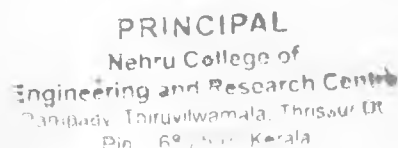 PRINCIPAL
Nehru College of
Engineering and Research Centre
Thiruvilwamala, Thrissur Dt
Pin 68 Kerala